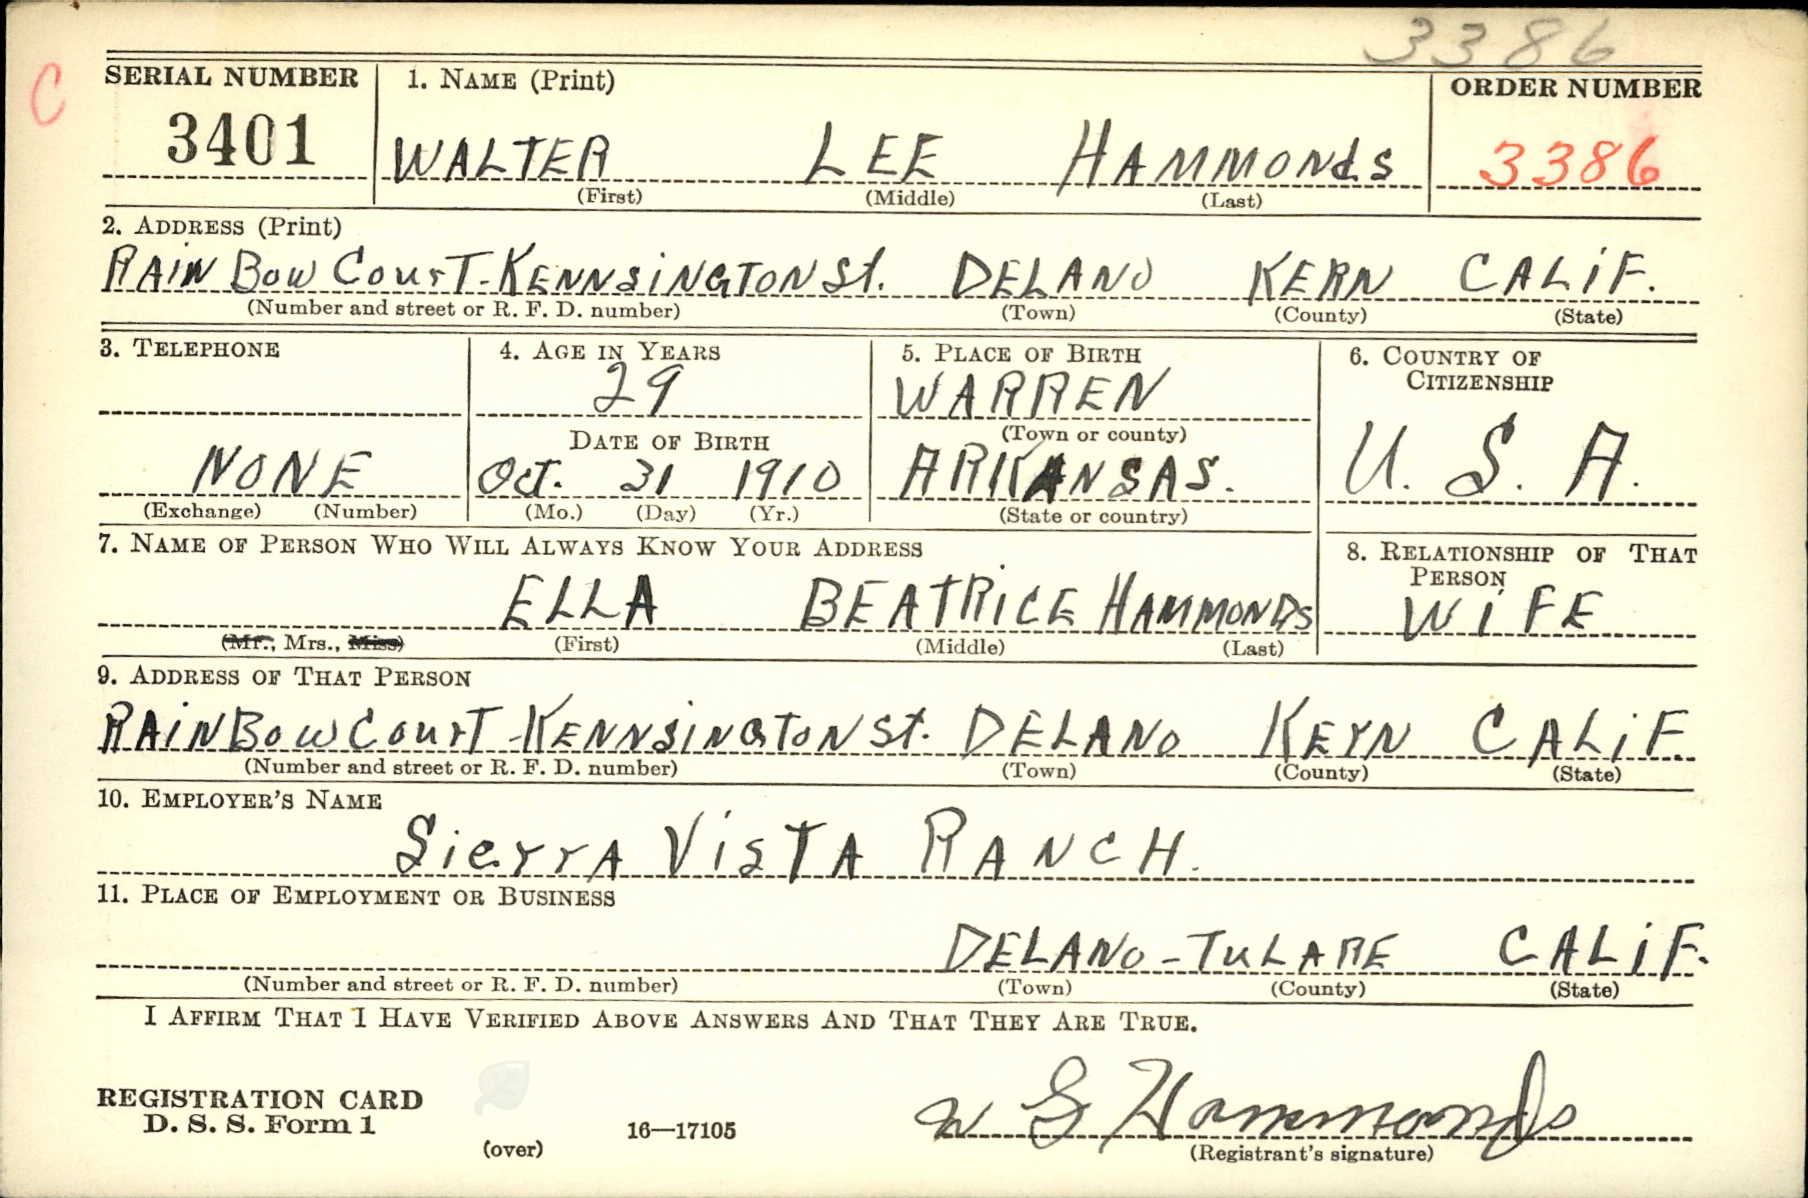 3386
C
SERIAL NUMBER 1. NAME (Print) ORDER NUMBER
3401 WALTER LEE HAMMONdS 3386
(First) (Middle) (Last)
2. ADDRESS (Print)
RAiN Bow CourT-KENNSiNGTON St. DELANO KERN CALiF.
(Number and street or R. F. D. number) (Town) (County) (State)
3. TELEPHONE 4. AGE IN YEARS 5. PLACE OF BIRTH 6. COUNTRY OF CITIZENSHIP
29 WARREN
DATE OF BIRTH (Town or county)
NONE Oct. 31 1910 ARKANSAS. U. S. A.
(Exchange) (Number) (Mo.) (Day) (Yr.) (State or country)
7. NAME OF PERSON WHO WILL ALWAYS KNOW YOUR ADDRESS 8. RELATIONSHIP OF THAT PERSON
ELLA BEATRiCE HAMMONDS WiFE
(Mr., Mrs., Miss) (First) (Middle) (Last)
9. ADDRESS OF THAT PERSON
RAiNBow CourT-KENNSiNGTON St. DELANO KErN CALiF.
(Number and street or R. F. D. number) (Town) (County) (State)
10. EMPLOYER'S NAME
SierrA ViSTA RANCH.
11. PLACE OF EMPLOYMENT OR BUSINESS
DELANO-TuLARE CALiF.
(Number and street or R. F. D. number) (Town) (County) (State)
I AFFIRM THAT I HAVE VERIFIED ABOVE ANSWERS AND THAT THEY ARE TRUE.
REGISTRATION CARD
D. S. S. Form 1 (over) 16—17105 W L Hammonds
(Registrant's signature)